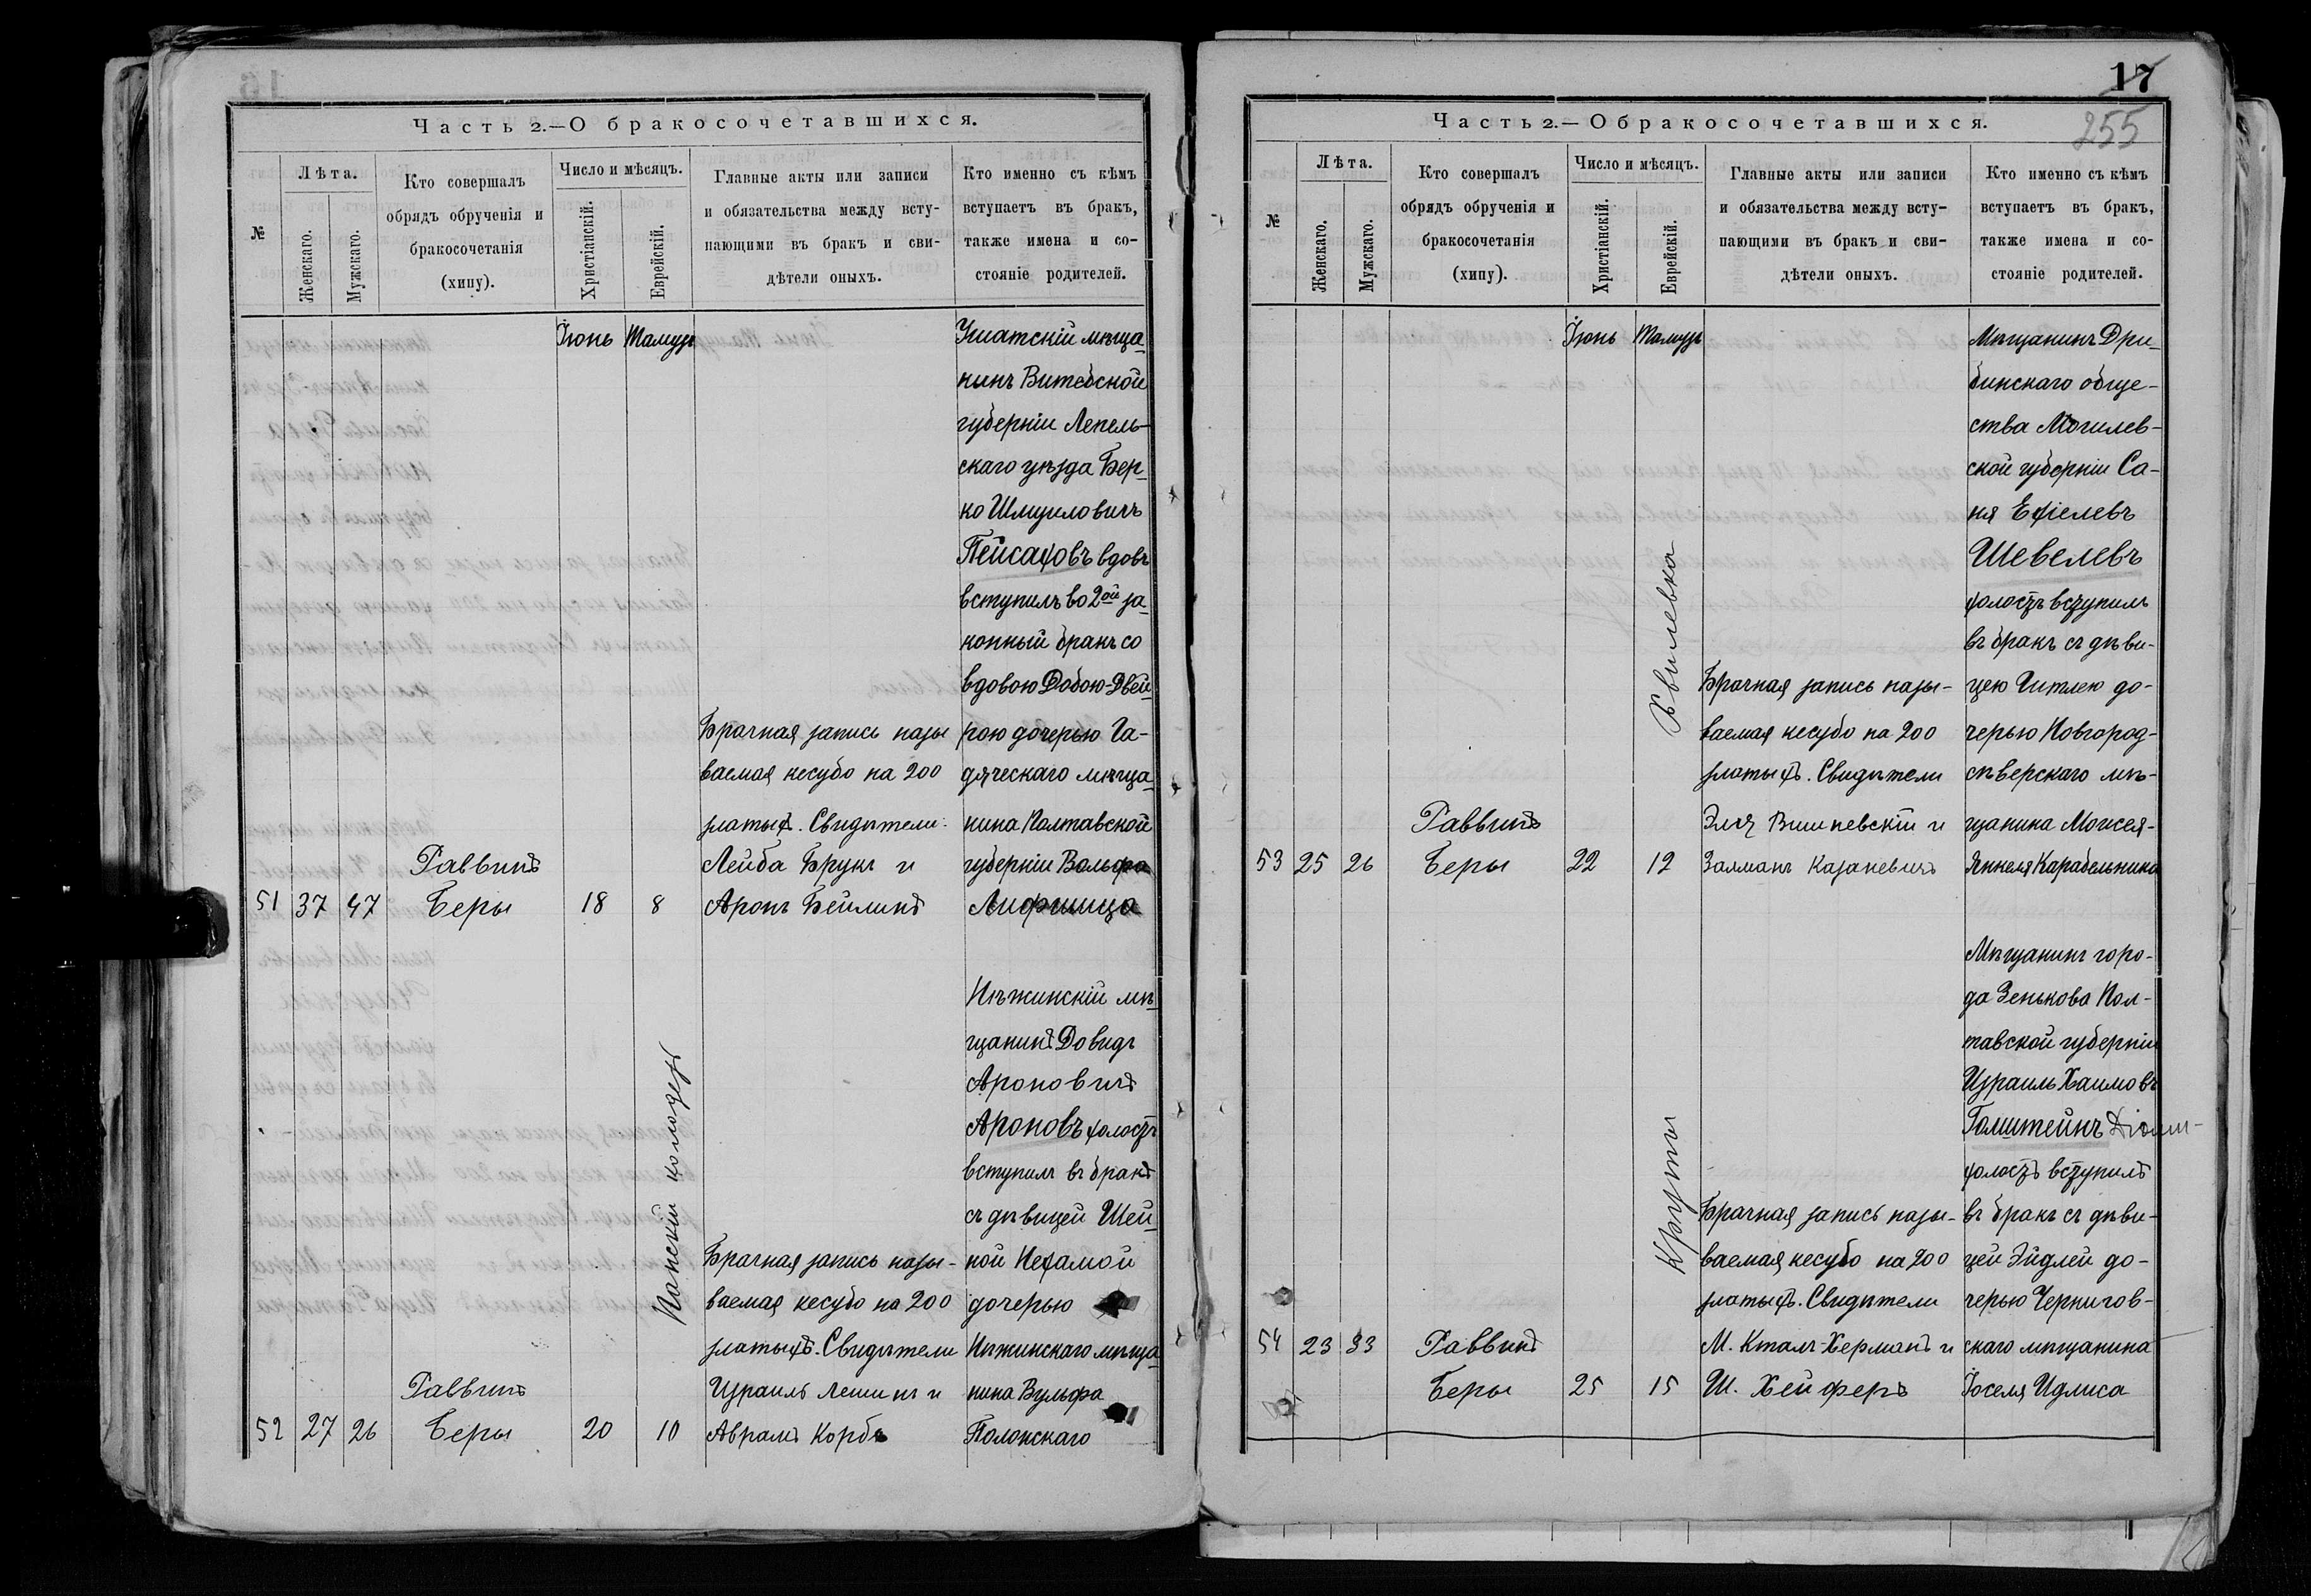 Часть 2.—О бракосочетавшихся.
№
Лѣта.
Женскаго.
Мужскаго.
Кто совершалъ
обрядъ обрученія и
бракосочетанія
(хипу).
Число и мѣсяцъ.
Христіанскій.
Еврейскій.
Главные акты или записи
и обязательства между всту-
пающими въ бракъ и сви-
дѣтели оныхъ.
Кто именно съ кѣмъ
вступаетъ въ бракъ,
также имена и со-
стояніе родителей.
Іюнь Тамузъ
51 37 47
Раввинъ
Беры
18 8
Брачная запись назы
ваемая кесубо на 200
златыхъ. Свидѣтели
Лейба Брукъ и
Аронъ Бейлинъ
Ушатскій мѣща-
нинъ Витебской
губерніи Лепель-
скаго уѣзда Бер-
ко Шмуиловичъ
Пейсаховъ вдовъ
вступилъ во 2ой за-
конный бракъ со
вдовою Добою-Двей-
рою дочерью Га-
дяческаго мѣща-
нина Полтавской
губерніи Вольфа
Лифшица
52 27 26
Раввинъ
Беры
20 10
Панскій колодезь
Брачная запись назы-
ваемая кесубо на 200
златыхъ. Свидѣтели
Израиль Лешинъ и
Аврамъ Корбъ
Нѣжинскій мѣ-
щанинъ Довидъ
Ароновичъ
Ароновъ холостъ
вступилъ въ бракъ
съ дѣвицей Шей-
ной Нехамой
дочерью
Нѣжинскаго мѣща-
нина Вульфа
Полонскаго
17
255
Часть 2.—О бракосочетавшихся.
№
Лѣта.
Женскаго.
Мужскаго.
Кто совершалъ
обрядъ обрученія и
бракосочетанія
(хипу).
Число и мѣсяцъ.
Христіанскій.
Еврейскій.
Главные акты или записи
и обязательства между всту-
пающими въ бракъ и сви-
дѣтели оныхъ.
Кто именно съ кѣмъ
вступаетъ въ бракъ,
также имена и со-
стояніе родителей.
Іюнь Тамузъ
53 25 26
Раввинъ
Беры
22 12
Хвилевка
Брачная запись назы-
ваемая кесубо на 200
златыхъ. Свидѣтели
Эля Вишневскій и
Залманъ Казаневичъ
Мѣщанинъ Дри-
бинскаго обще-
ства Могилев-
ской губерніи Са-
ня Ехіелевъ
Шевелевъ
холостъ вступилъ
въ бракъ съ дѣви-
цею Гитлею до-
черью Новгород-
сѣверскаго мѣ-
щанина Моисея-
Янкеля Карабельника
54 23 33
Раввинъ
Беры
25 15
Круты
Брачная запись назы-
ваемая кесубо на 200
златыхъ. Свидѣтели
М. Кталъ-Херманъ и
Ш. Хейферъ
Мѣщанинъ горо-
да Зенькова Пол-
тавской губерніи
Израиль Хаимовъ
Голштейнъ
холостъ вступилъ
въ бракъ съ дѣви-
цей Эйдлей до-
черью Чернигов-
скаго мѣщанина
Іоселя Идлиса